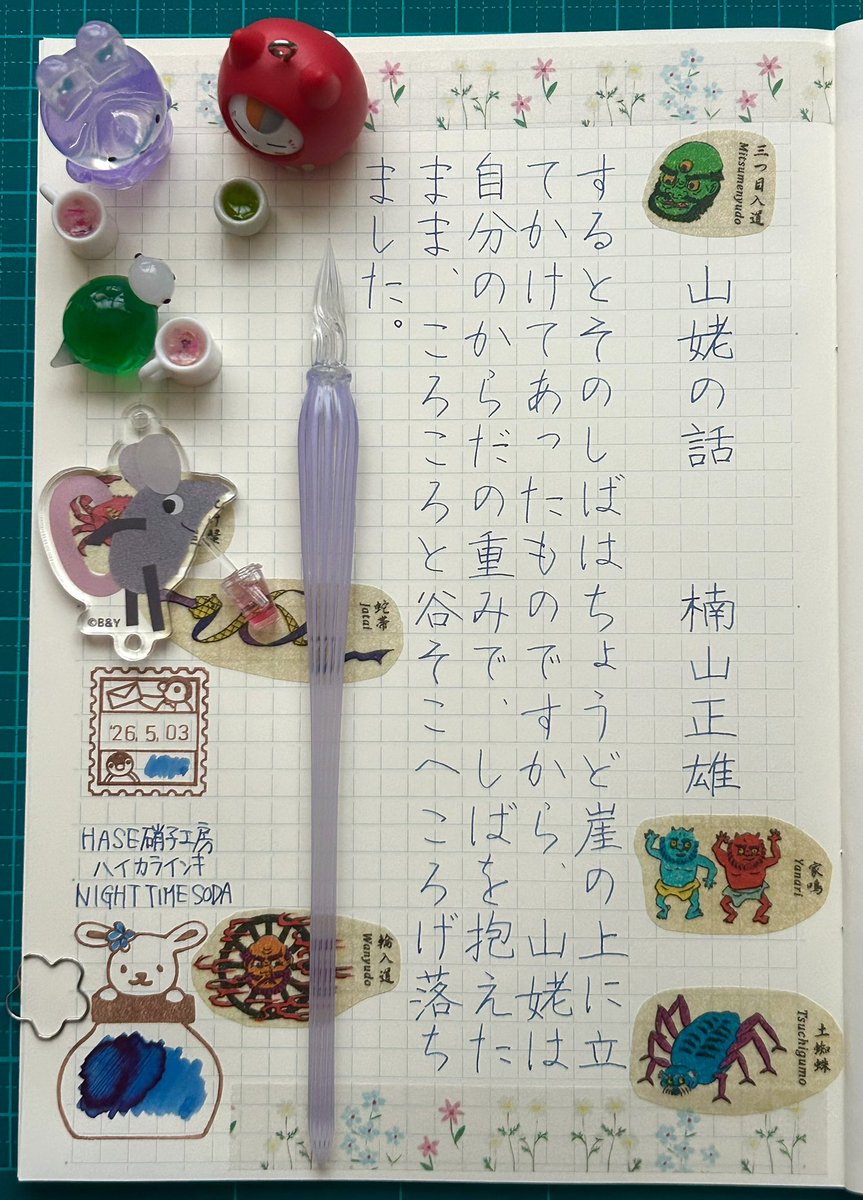 山姥の話 楠山正雄
するとそのしばはちょうど崖の上に立
てかけてあったものですから、山姥は
自分のからだの重みで、しばを抱えた
まま、ころころと谷そこへころげ落ち
ました。
三つ目入道
Mitsumenyudo
家鳴
Yanari
土蜘蛛
Tsuchigumo
蛇帯
Jatai
輪入道
Wanyudo
©B&Y
'26.5.03
HASE硝子工房
ハイカラインキ
NIGHT TIME SODA